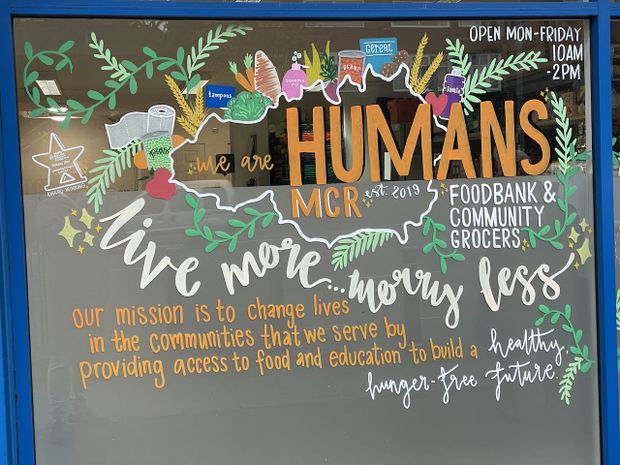 OPEN MON-FRIDAY
10AM
-2PM
CEREAL
tampons
we are
HUMANS
MCR
est. 2019
FOODBANK &
COMMUNITY
GROCERS
Live more... worry less
our mission is to change lives
in the communities that we serve by
providing access to food and education to build a
healthy,
hunger-free future.